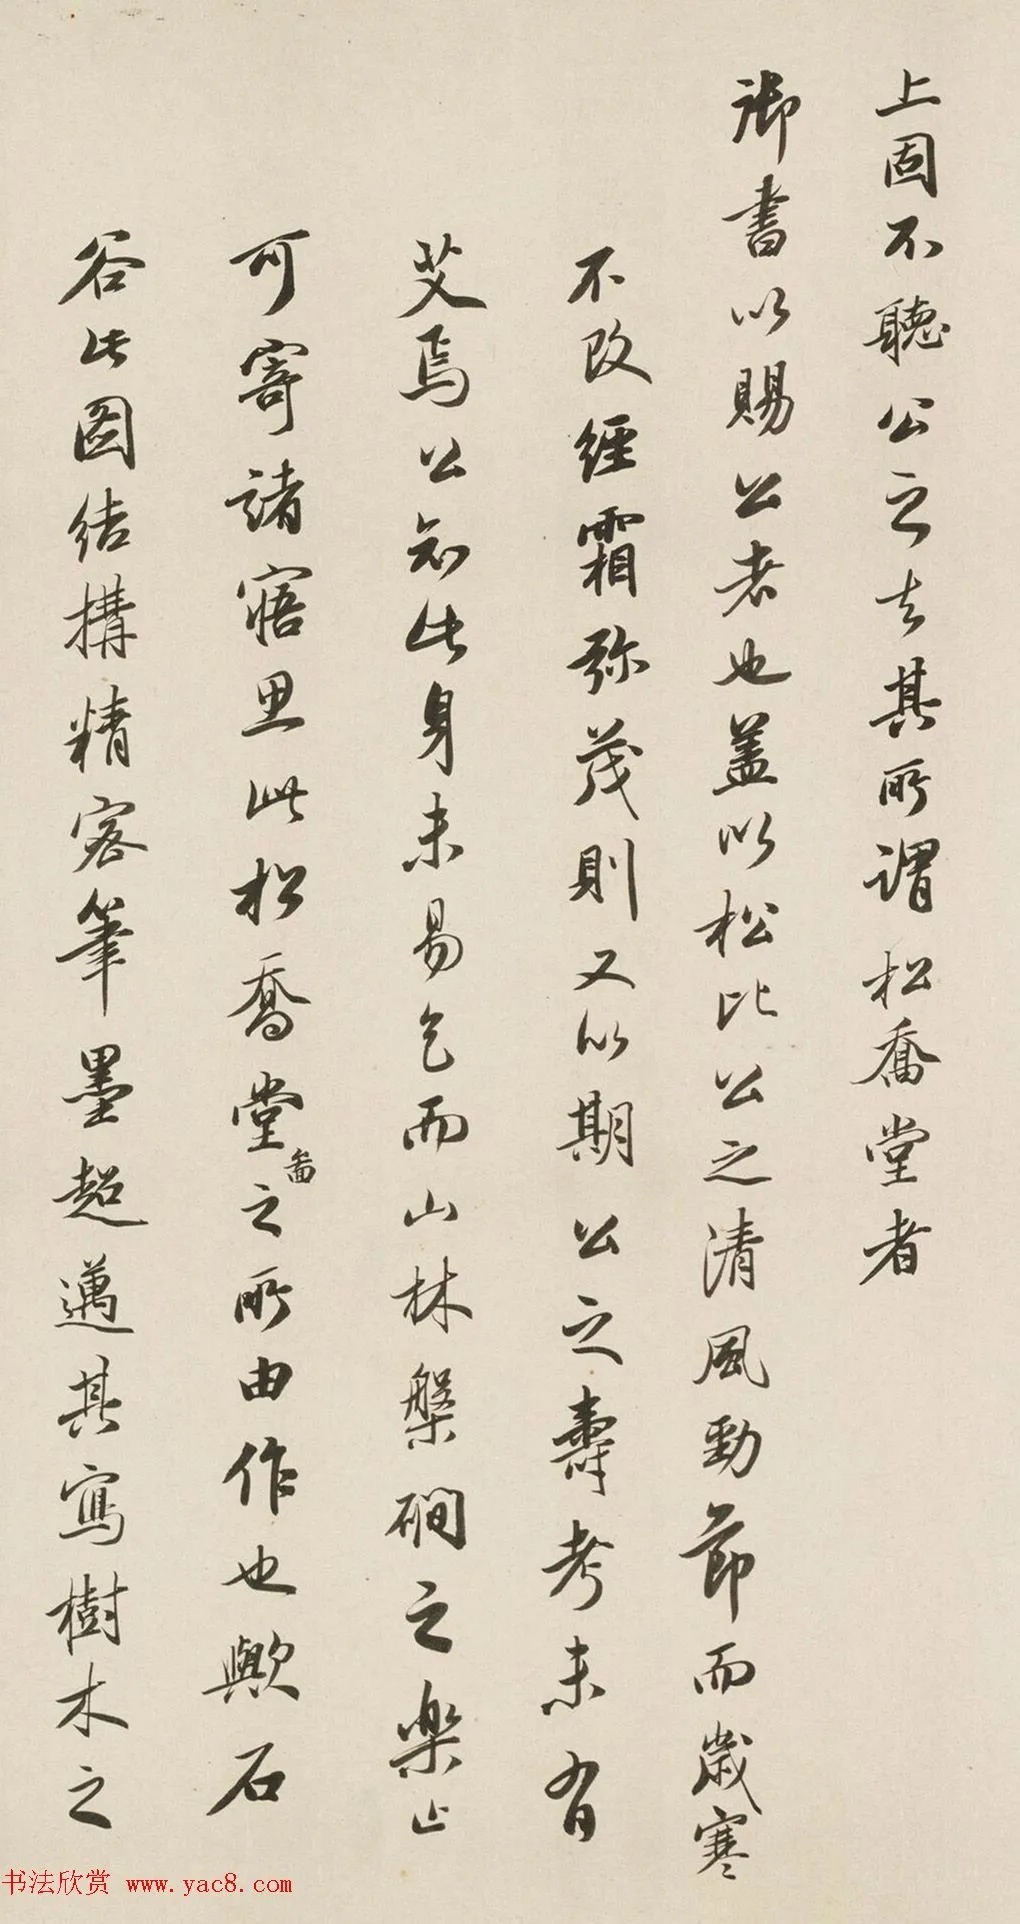 上固不聽公之去其所謂松喬堂者
御書以賜公者也蓋以松比公之清風勁節而歲寒
不改經霜弥茂則又以期公之壽考未有
艾焉公知此身未易乞而山林槃磵之樂止
可寄諸寤思此松喬堂圖之所由作也歟石
谷此圖結構精密筆墨超邁其寫樹木之
书法欣赏 www.yac8.com